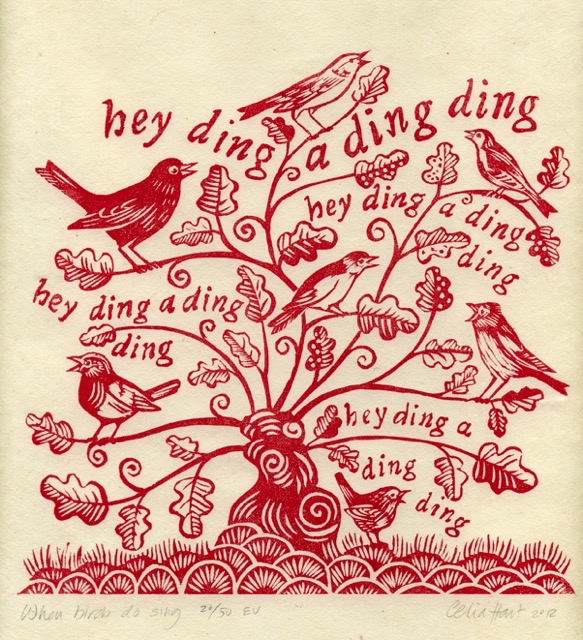 hey ding a ding ding
hey ding a ding
ding
hey ding a ding
ding
hey ding a
ding
ding
When birds do sing 20/50 EV Celia Hart 2012